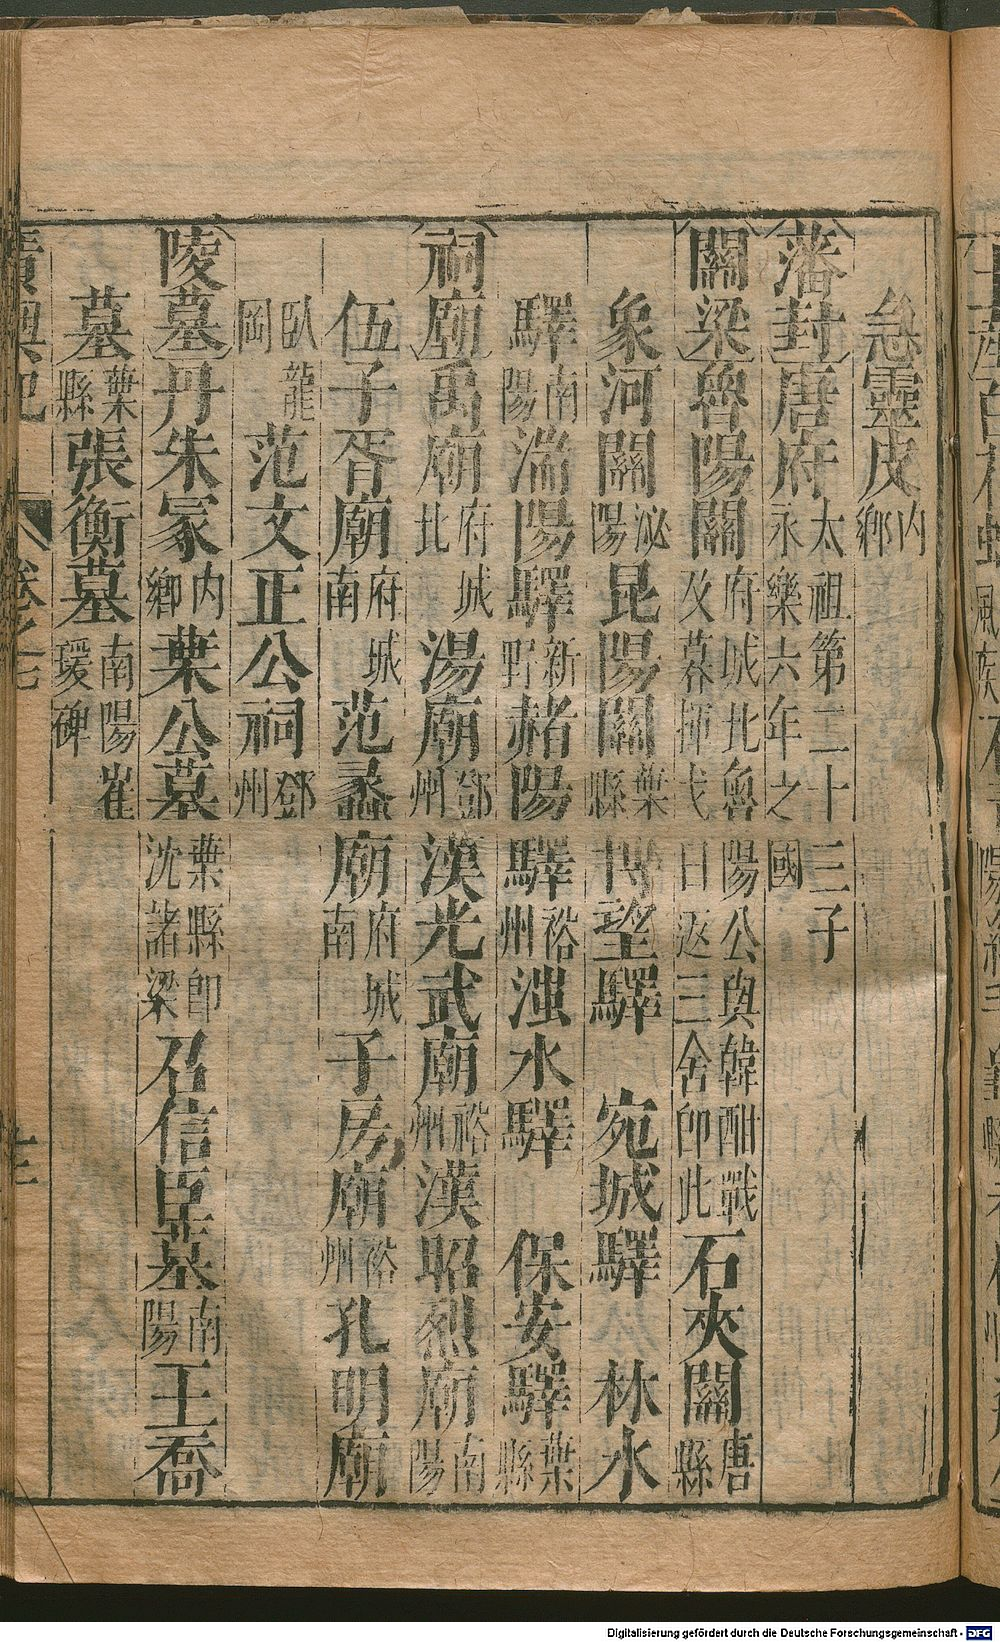 急靈皮内鄉
藩封唐府太祖第二十三子永樂六年之國
關梁魯陽關府城北魯陽公與韓酣戰及暮揮戈日返三舍卽此石夾關唐縣
象河關泌陽昆陽關葉縣博望驛 宛城驛 林水
驛南陽湍陽驛新野赭陽驛裕州滍水驛 保安驛葉縣
祠廟禹廟府城北湯廟鄧州漢光武廟裕州漢昭烈廟南陽
伍子胥廟府城南范蠡廟府城南子房廟裕州孔明廟
臥龍岡范文正公祠鄧州
陵墓丹朱冢内鄉葉公墓葉縣卽沈諸梁召信臣墓南陽王喬
墓葉縣張衡墓南陽崔瑗碑
廣輿記 卷之七
Digitalisierung gefördert durch die Deutsche Forschungsgemeinschaft - DFG